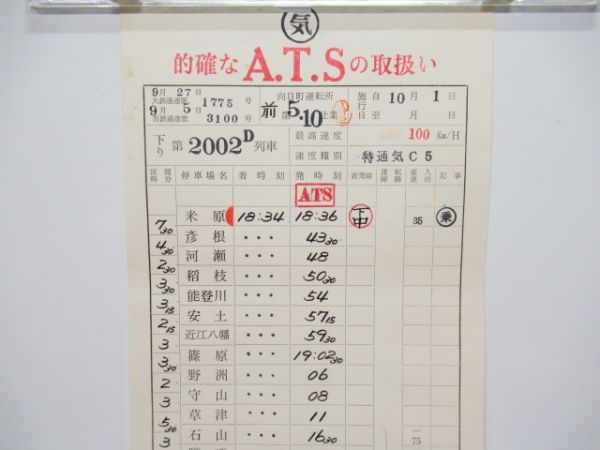 気
的確な A.T.S の取扱い
9月27日
大鉄運達第 1775 号
9月5日
名鉄運達第 3100 号
向日町運転所
前 5.10 仕業
施行 自 10月 1日
至 月 日
下り 第 2002D 列車
最高速度 100 Km/H
速度種別 特通気C5
区間時分 停車場名 着時刻 発時刻 着発線 記事
ATS
米原 18:34 18:36 下中 35 乗
730
彦根 ・・・ 4330
430
河瀬 ・・・ 48
230
稲枝 ・・・ 5030
330
能登川 ・・・ 54
315
安土 ・・・ 5715
215
近江八幡 ・・・ 5930
3
篠原 ・・・ 19:0230
330
野洲 ・・・ 06
2
守山 ・・・ 08
3
草津 ・・・ 11
530
石山 ・・・ 1630 75
3